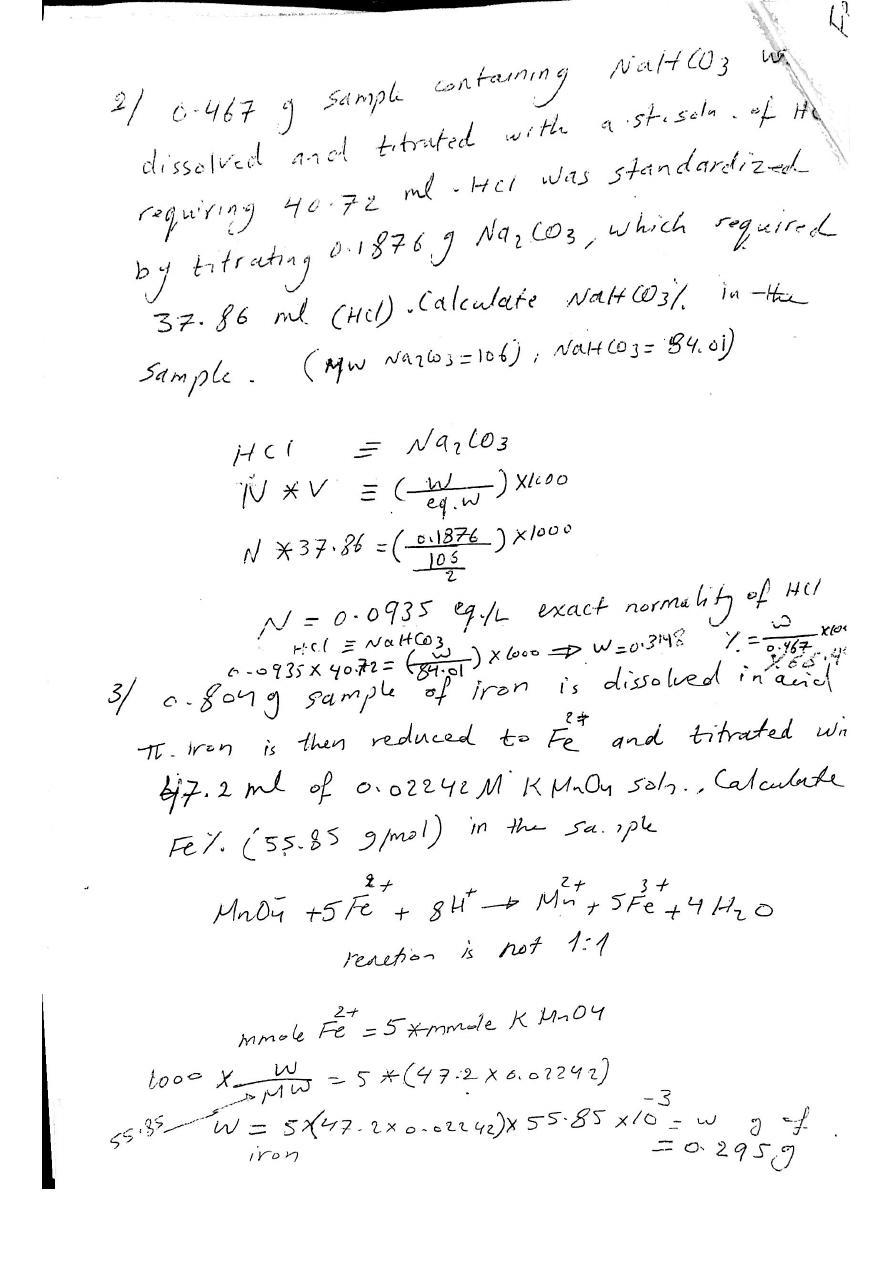 2/ 0.467 g sample containing NaHCO3
dissolved and titrated with a st. soln. of
requiring 40.72 ml. HCl was standardized
by titrating 0.1876 g Na2CO3, which required
37.86 ml (HCl). Calculate NaHCO3% in the
sample. (MW Na2CO3=106), NaHCO3=84.01)
HCl ≡ Na2CO3
N * V ≡ (w/eq.w) x1000
N *37.86 = (0.1876/(106/2)) x1000
N = 0.0935 eq./L exact normality of HCl
HCl ≡ NaHCO3
0.0935 x 40.72 = (w/84.01) x 1000 ⇒ w=0.3198 % = w/0.467
3/ 0.804 g sample of iron is dissolved in acid
iron is then reduced to Fe2+ and titrated
47.2 ml of 0.02242 M KMnO4 soln., Calculate
Fe%. (55.85 g/mol) in the
MnO4- +5Fe2+ + 8H+ → Mn2+ + 5Fe3+ +4H2O
reaction is not 1:1
mmole Fe2+ = 5*mmole KMnO4
1000 x w/MW = 5*(47.2x0.02242)
55.85
w = 5x(47.2x0.02242)x55.85x10-3 = w g of
iron = 0.295g